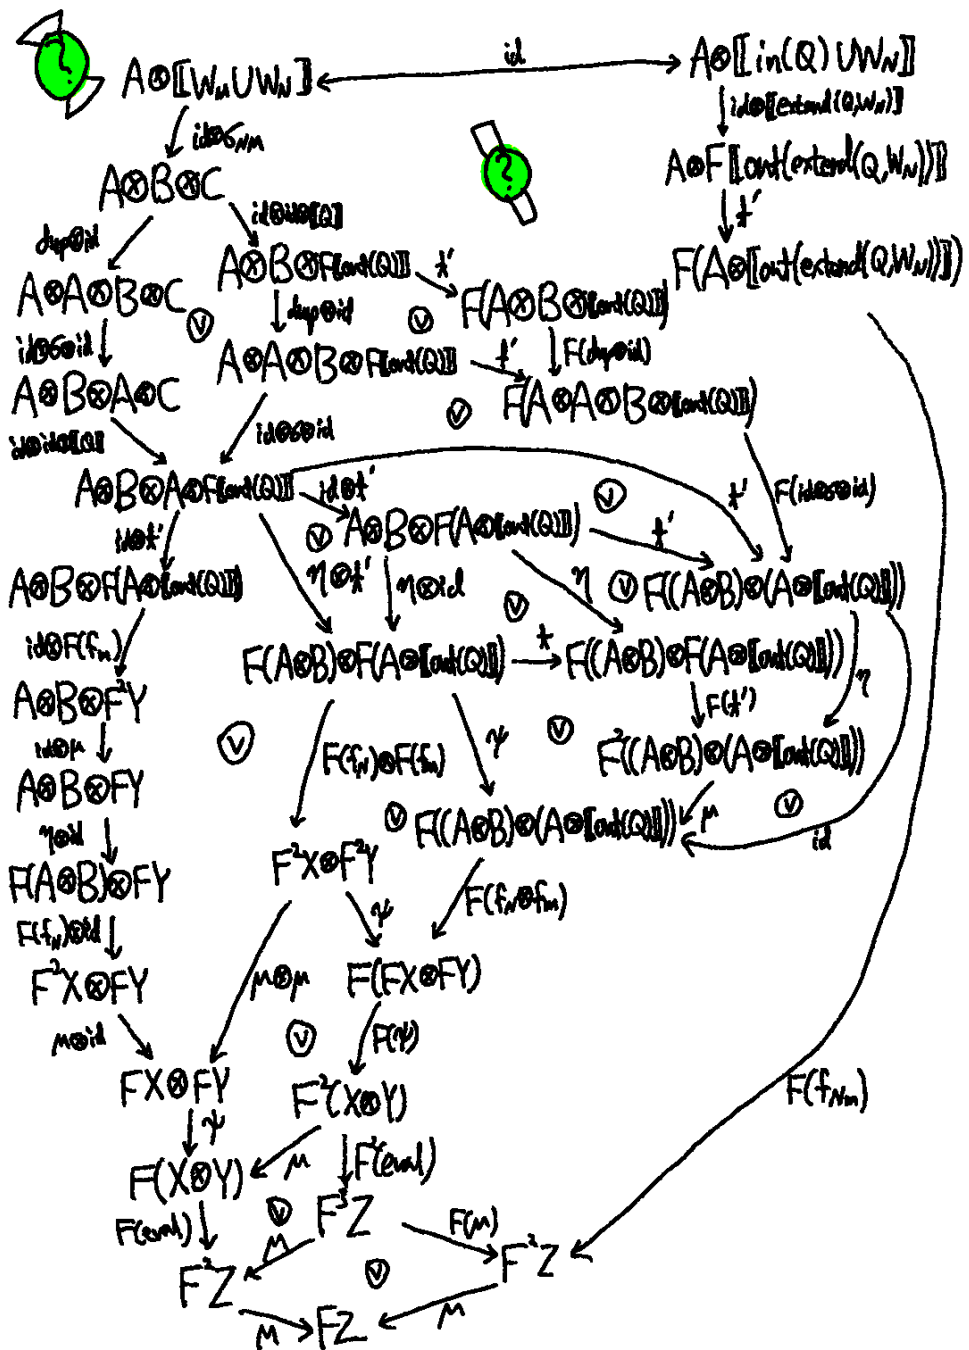 ?
id
A⊗⟦W_M∪W_N⟧
A⊗⟦in(Q)∪W_N⟧
id⊗σ_NM
id⊗⟦extend(Q,W_N)⟧
?
A⊗B⊗C
A⊗F⟦out(extend(Q,W_N))⟧
id⊗id⊗⟦Q⟧
t'
dup⊗id
A⊗B⊗F⟦out(Q)⟧
t'
F(A⊗⟦out(extend(Q,W_N))⟧)
A⊗A⊗B⊗C
F(A⊗B⊗⟦out(Q)⟧)
dup⊗id
id⊗σ⊗id
t'
F(dup⊗id)
A⊗A⊗B⊗F⟦out(Q)⟧
A⊗B⊗A⊗C
F(A⊗A⊗B⊗⟦out(Q)⟧)
id⊗id⊗⟦Q⟧
id⊗σ⊗id
A⊗B⊗A⊗F⟦out(Q)⟧
id⊗t'
t'
F(id⊗σ⊗id)
A⊗B⊗F(A⊗⟦out(Q)⟧)
t'
id⊗t'
A⊗B⊗F(A⊗⟦out(Q)⟧)
η⊗t'
η⊗id
η
F((A⊗B)⊗(A⊗⟦out(Q)⟧))
id⊗F(f_M)
F(A⊗B)⊗F(A⊗⟦out(Q)⟧)
t
F((A⊗B)⊗F(A⊗⟦out(Q)⟧))
A⊗B⊗F²Y
F(t')
η
id⊗μ
F(f_N)⊗F(f_M)
ψ
F²((A⊗B)⊗(A⊗⟦out(Q)⟧))
A⊗B⊗FY
μ
η⊗id
F((A⊗B)⊗(A⊗⟦out(Q)⟧))
id
F(A⊗B)⊗FY
F²X⊗F²Y
F(f_N⊗f_M)
F(f_N)⊗id
ψ
F²X⊗FY
μ⊗μ
F(FX⊗FY)
μ⊗id
F(ψ)
FX⊗FY
F²(X⊗Y)
F(f_NM)
ψ
μ
F²(eval)
F(X⊗Y)
F(eval)
F³Z
F(μ)
μ
F²Z
F²Z
μ
FZ
μ